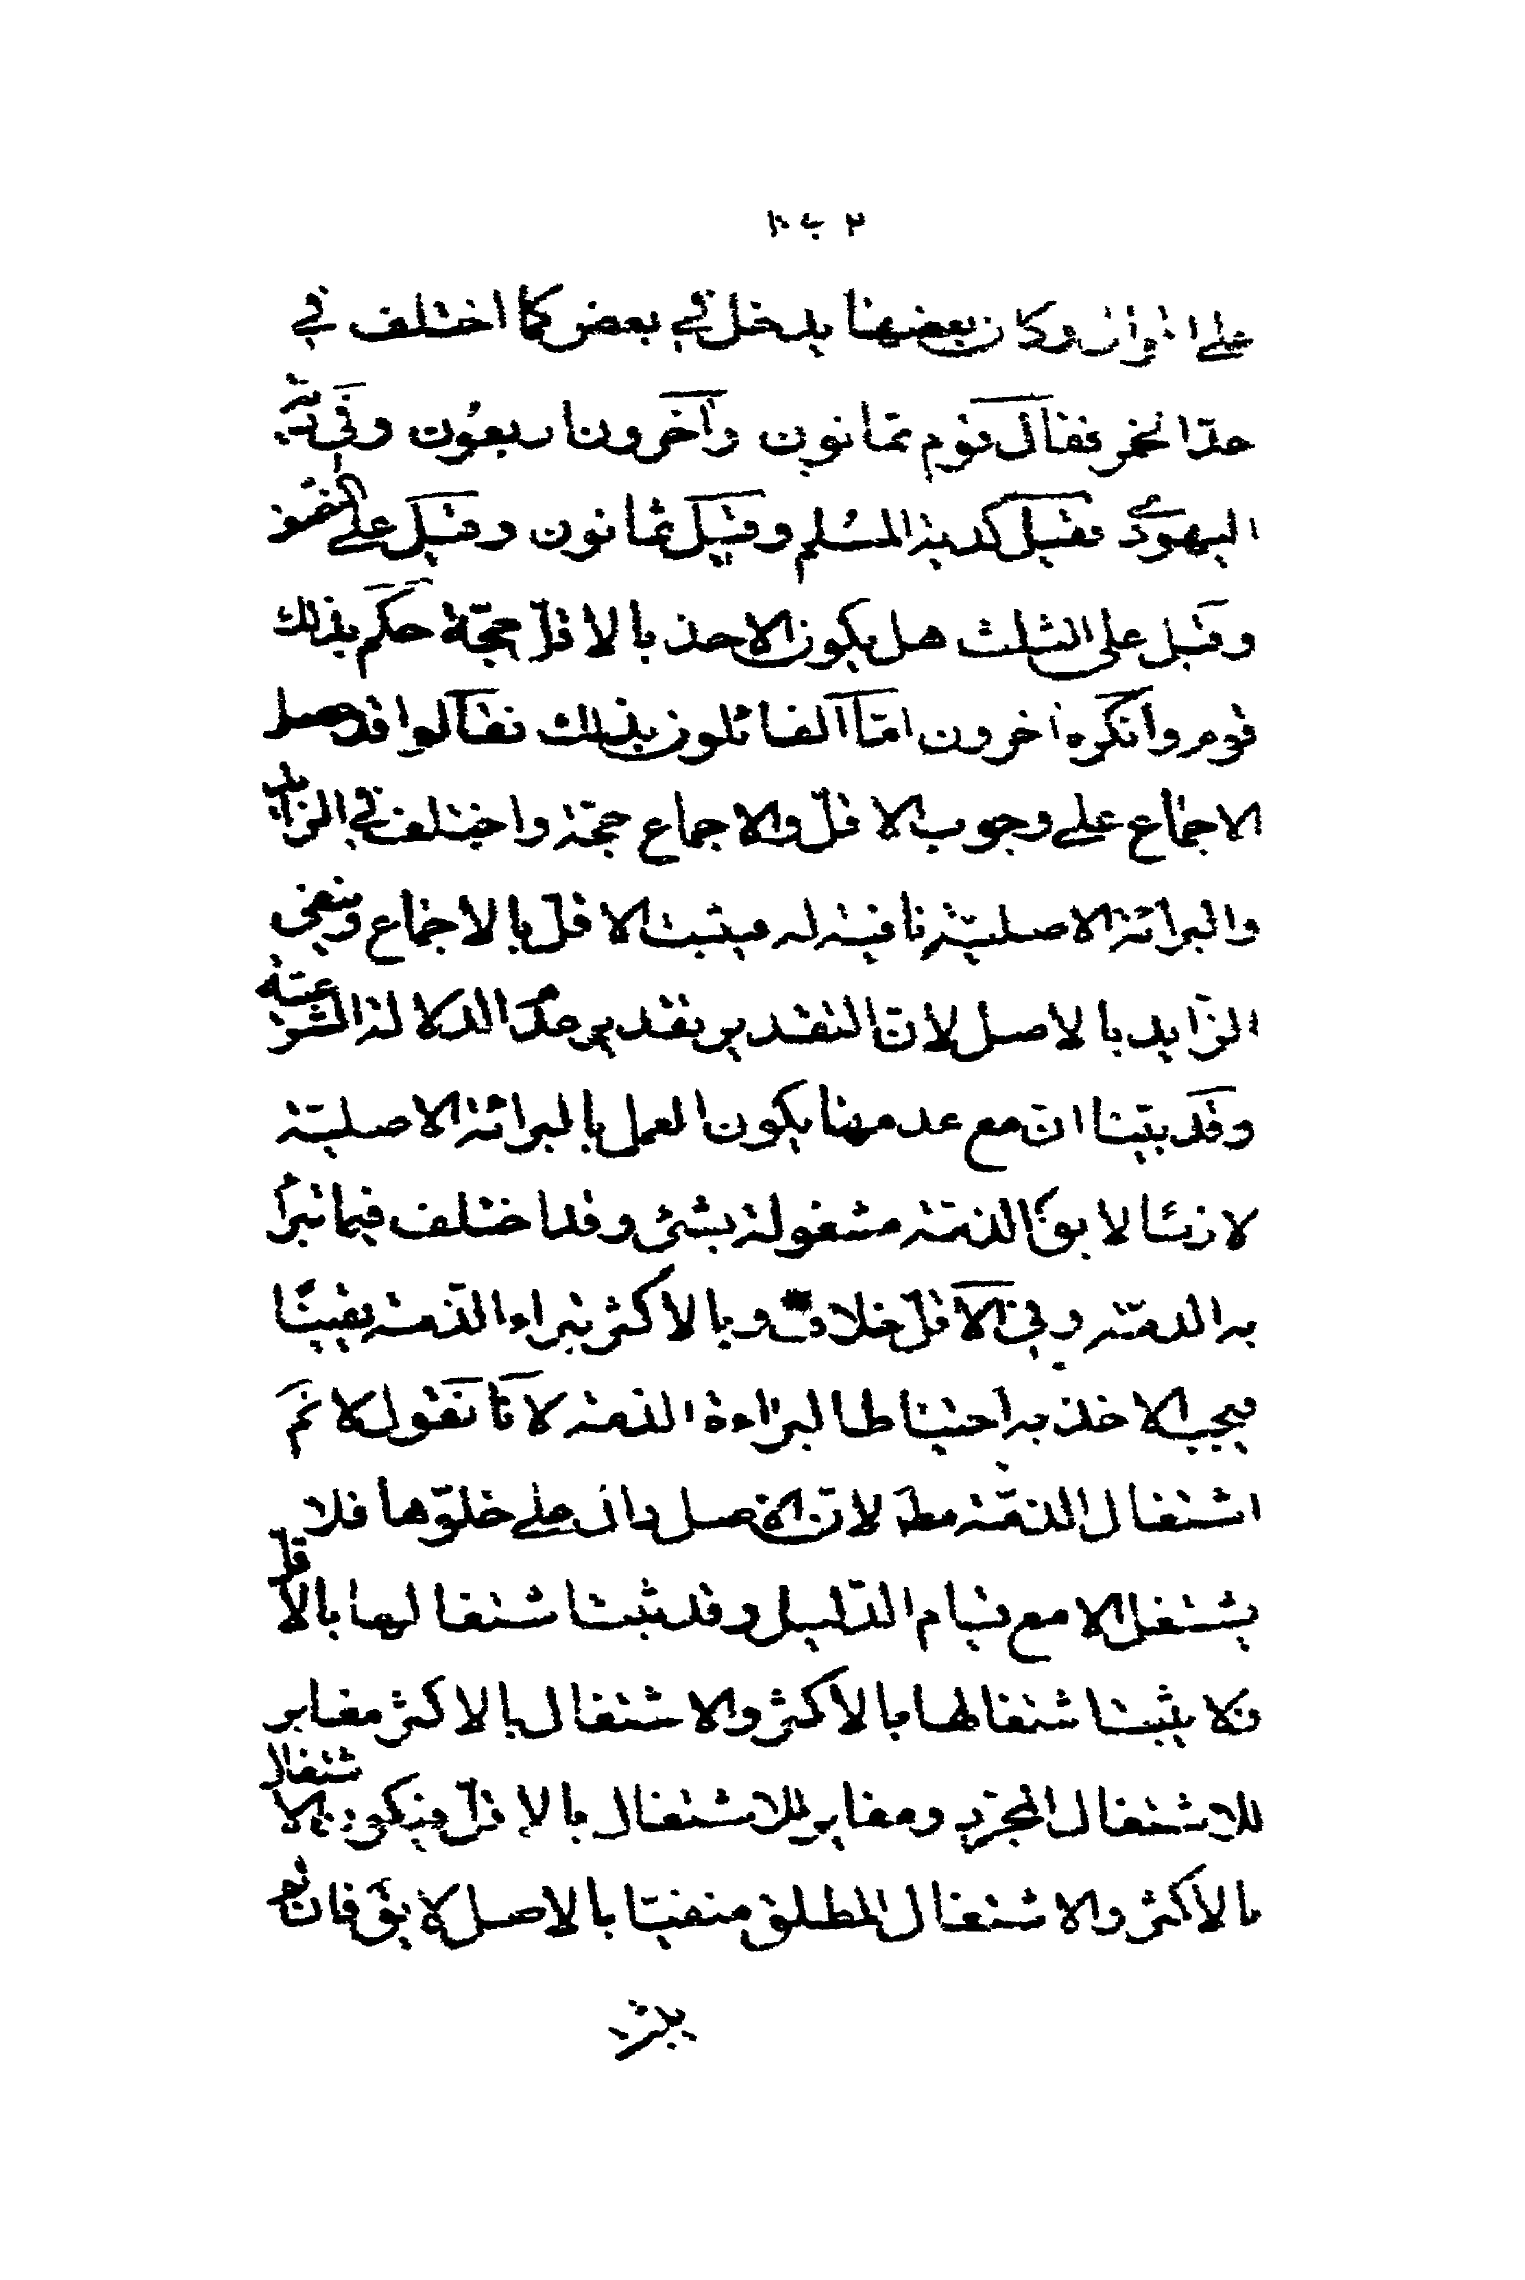 على اقوال وكان بعضها يدخل في بعض كما اختلف في
حدّ الخمر فقال قوم ثمانون وآخرون اربعون وفي دية
اليهودى فقيل كدية المسلم وقيل ثمانون وقيل على النصف
وقيل على الثلث هل يكون الاخذ بالاقلّ حجّة حكم بذلك
قوم وانكره اخرون امّا القائلون بذلك فقالوا قد حصل
الاجماع على وجوب الاقلّ والاجماع حجّة واختلف في الزايد
والبرائة الاصليّة نافية له فيثبت الاقلّ بالاجماع وينفى
الزايد بالاصل لانّ التقدير تقدير عدم الدلالة الشرعيّة
وقد بيّنا انّ مع عدمها يكون العمل بالبرائة الاصليّة
لازمًا لا يقال الذمّة مشغولة بشئ وقد اختلف فيما تبرأ
به الذمّة وفي الاقلّ خلاف وبالاكثر تبراء الذّمة يقينًا
فيجب الاخذ به احتياطا لبراءة الذمة لانّا نقول لا نم
اشتغال الذمّة مطلقا لانّ الاصل دالّ على خلوّها فلا
يشتغل الا مع قيام الدّليل وقد ثبت اشتغالها بالاقلّ
فلا يثبت اشتغالها بالاكثر والاشتغال بالاكثر مغاير
للاشتغال المجرّد ومغاير للاشتغال بالاقلّ فيكون الاشتغال
بالاكثر والاشتغال المطلق منفيّا بالاصل لا يق فانه